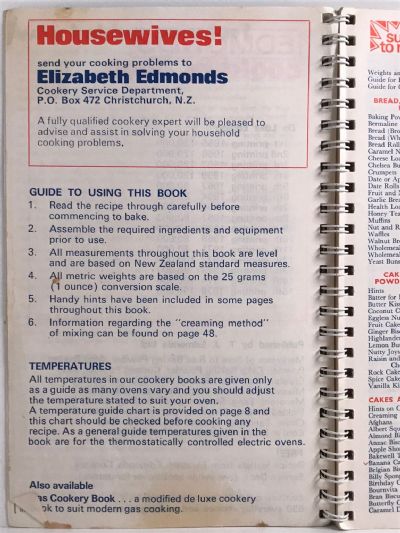 Housewives!
send your cooking problems to
Elizabeth Edmonds
Cookery Service Department,
P.O. Box 472 Christchurch, N.Z.
A fully qualified cookery expert will be pleased to
advise and assist in solving your household
cooking problems.
GUIDE TO USING THIS BOOK
1. Read the recipe through carefully before
commencing to bake.
2. Assemble the required ingredients and equipment
prior to use.
3. All measurements throughout this book are level
and are based on New Zealand standard measures.
4. All metric weights are based on the 25 grams
(1 ounce) conversion scale.
5. Handy hints have been included in some pages
throughout this book.
6. Information regarding the "creaming method"
of mixing can be found on page 48.
TEMPERATURES
All temperatures in our cookery books are given only
as a guide as many ovens vary and you should adjust
the temperature stated to suit your oven.
A temperature guide chart is provided on page 8 and
this chart should be checked before cooking any
recipe. As a general guide temperatures given in the
book are for the thermostatically controlled electric ovens.
Also available
as Cookery Book . . . a modified de luxe cookery
ok to suit modern gas cooking.
SU
to
Weights an
Guide for
Guide for
BREAD,
Baking Pow
Bermaline
Bread (Bro
Bread (Wh
Bread Rolls
Caramel N
Cheese Loa
Chelsea Bu
Crumpets
Date or Ap
Date Rolls
Fruit and N
Garlic Brea
Health Loa
Honey Tea
Muffins
Nut and R
Waffles
Walnut Bro
Wholemeal
Wholemeal
Yeast Buns
CAK
POWD
Hints
Batter for
Butter Kis
Coconut C
Eggless Nu
Fruit Cake
Ginger Bis
Highlander
Lemon But
Nutty Joys
Raisin and
Che
Rock Cake
Spice Cake
Vanilla Ki
CAKES A
Hints on C
Creaming
Afghans
Albert Squ
Almond Bi
Anzac Bisc
Apple Shor
Bakewell T
Banana Ca
Belgian Bi
Billy Spong
Birthday C
Bournvita
Bran Biscu
Butterfly C
Caramel D